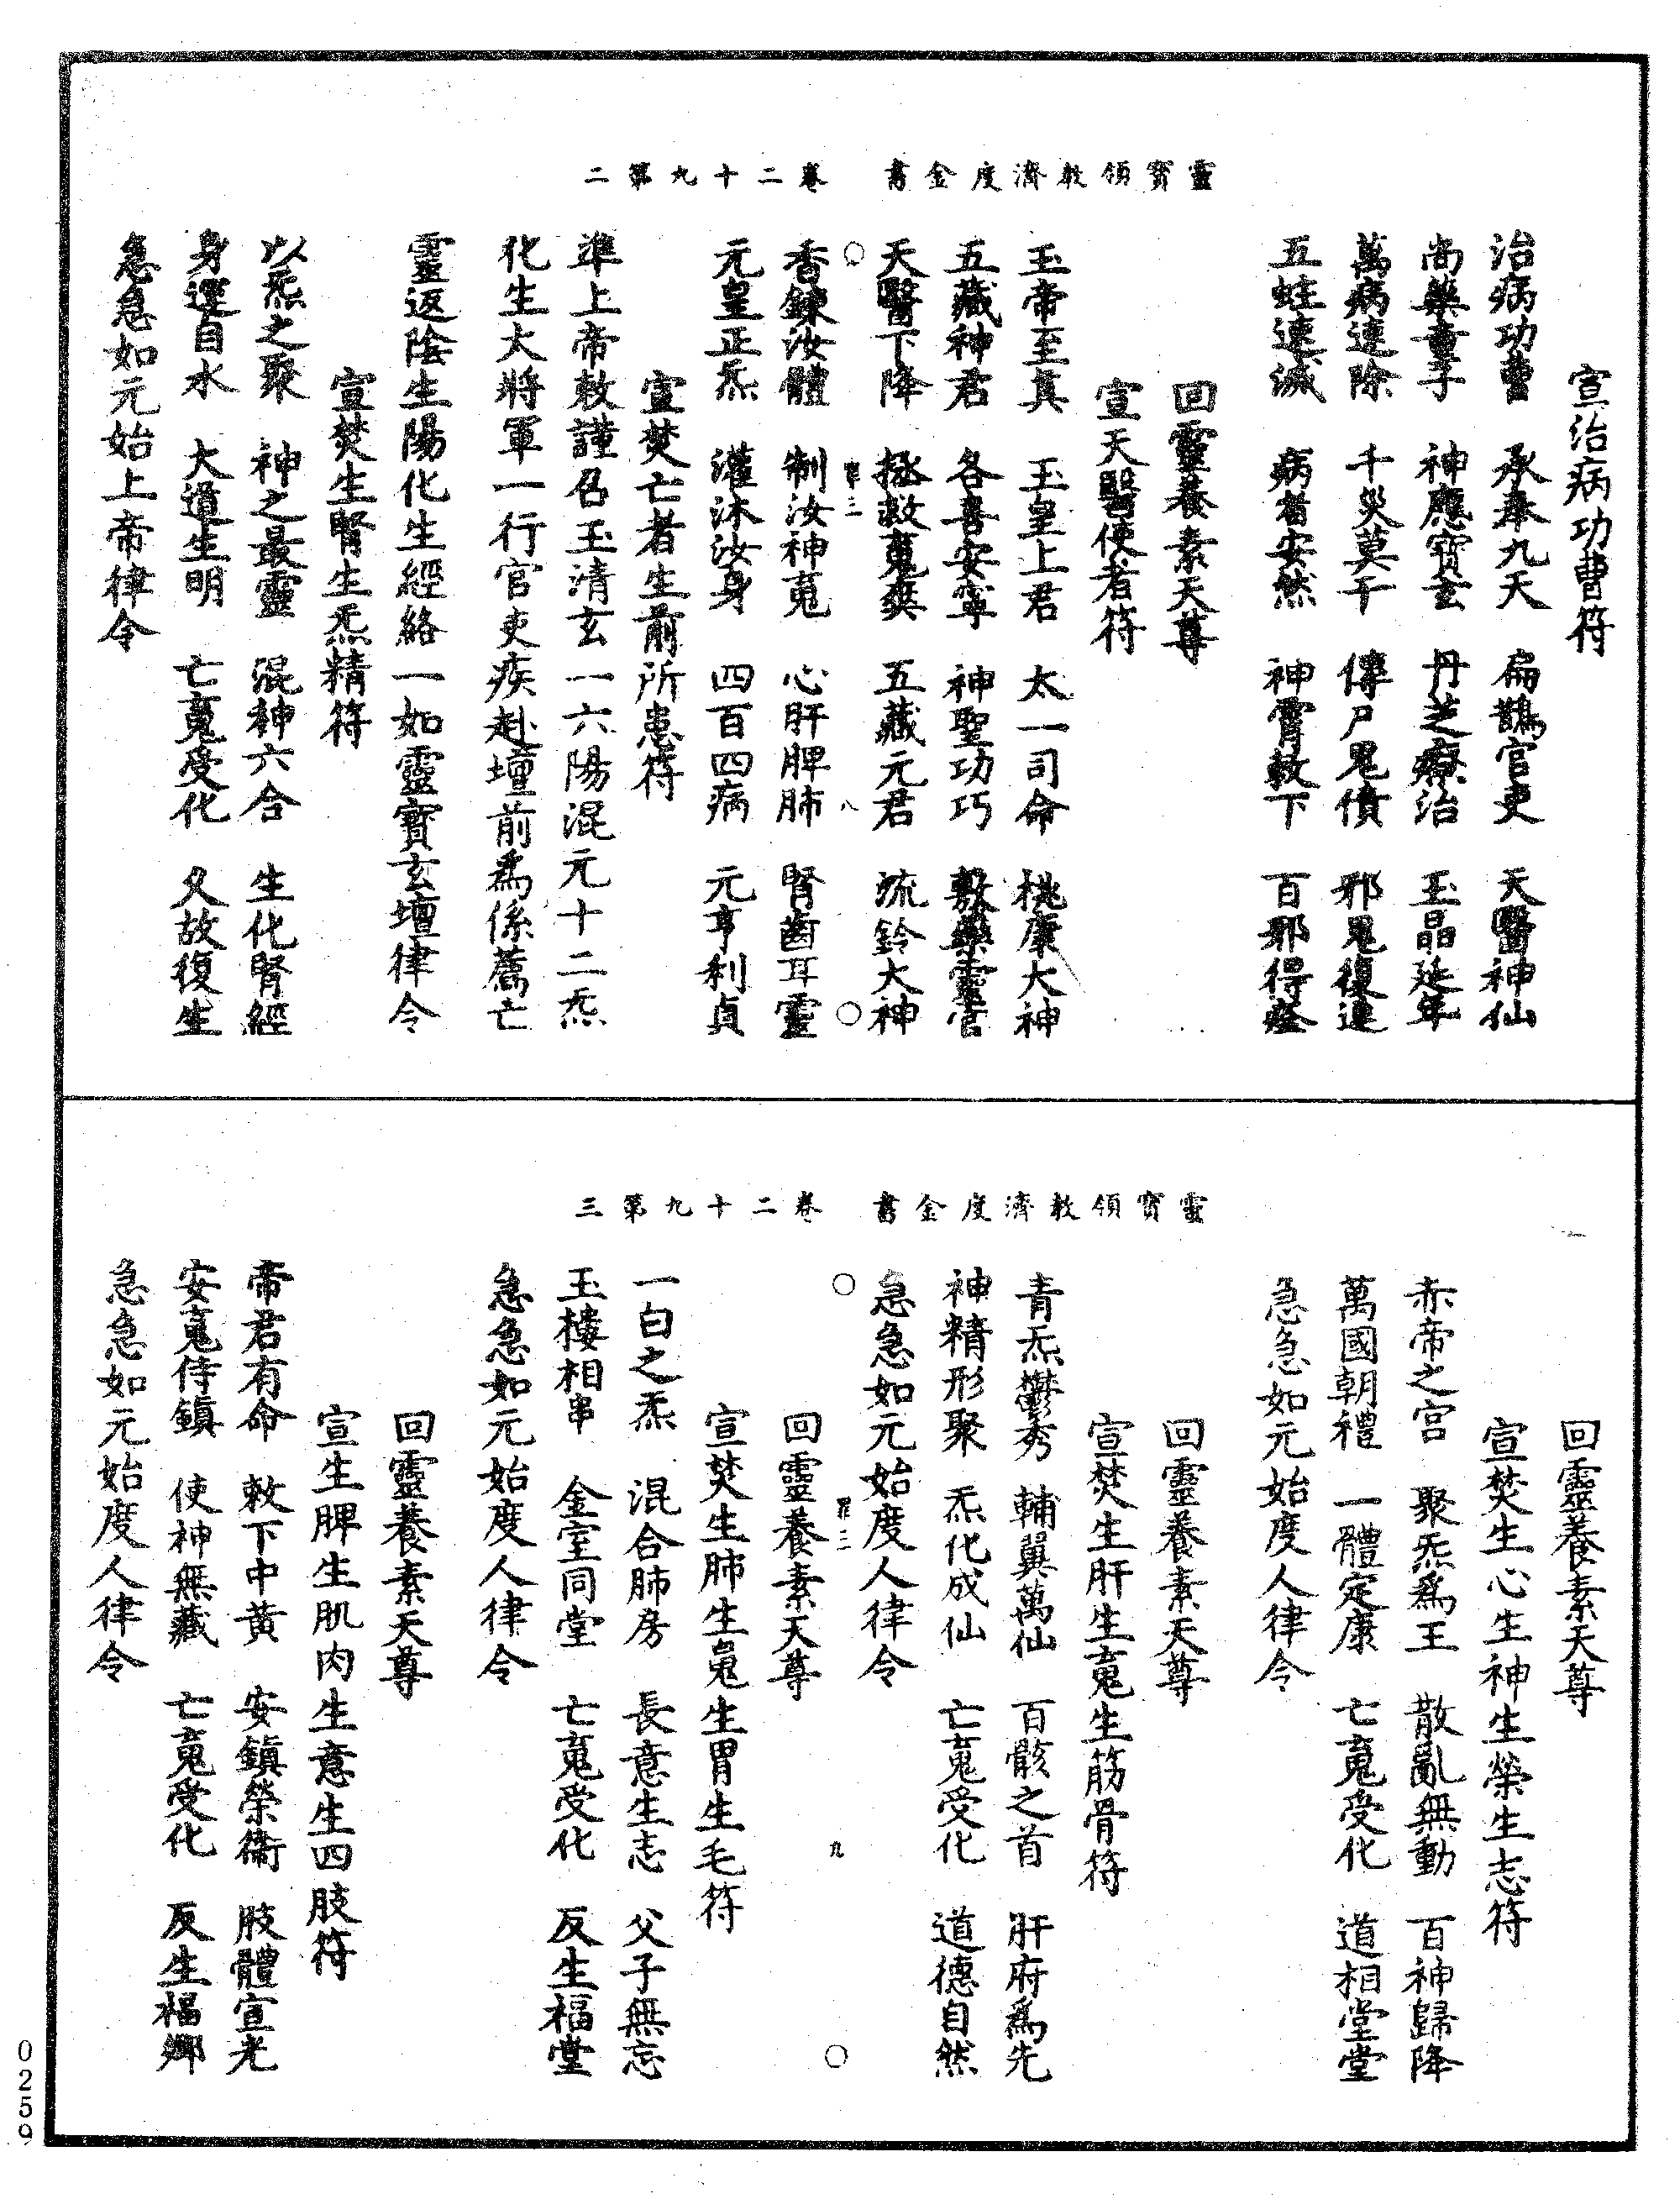 靈寶領教濟度金書　卷二十九第二
宣治病功曹符
治病功曹　承奉九天　扁鵲官吏　天醫神仙
尚藥童子　神應寶玄　丹芝療治　玉晶延年
萬病速除　千災莫干　傳尸鬼債　邪鬼復連
五蛙速滅　病者安然　神霄敕下　百邪得痊
回靈養素天尊
宣天醫使者符
玉帝至真　玉皇上君　太一司命　桃康大神
五藏神君　各喜安寧　神聖功巧　敷藥靈官
天醫下降　拯救䰟爽　五藏元君　流鈴大神
香鍊汝體　制汝神䰟　心肝脾肺　腎齒耳靈
元皇正炁　灌沐汝身　四百四病　元亨利貞
宣焚亡者生前所患符
準上帝敕謹召玉清玄一六陽混元十二炁
化生大將軍一行官吏疾赴壇前爲係薦亡
靈返陰生陽化生經絡一如靈寶玄壇律令
宣焚生腎生炁精符
以炁之聚　神之最靈　混神六合　生化腎經
身運自水　大道生明　亡䰟受化　又故復生
急急如元始上帝律令
靈寶領教濟度金書　卷二十九第三
回靈養素天尊
宣焚生心生神生榮生志符
赤帝之宮　聚炁爲王　散亂無動　百神歸降
萬國朝禮　一體定康　亡䰟受化　道相堂堂
急急如元始度人律令
回靈養素天尊
宣焚生肝生䰟生筋骨符
青炁鬱秀　輔翼萬仙　百骸之首　肝府爲先
神精形聚　炁化成仙　亡䰟受化　道德自然
急急如元始度人律令
回靈養素天尊
宣焚生肺生䰟生胃生毛符
一白之炁　混合肺房　長意生志　父子無忘
玉樓相串　金室同堂　亡䰟受化　反生福堂
急急如元始度人律令
回靈養素天尊
宣生脾生肌肉生意生四肢符
帝君有命　敕下中黃　安鎮榮衞　肢體宣光
安䰟侍鎮　使神無藏　亡䰟受化　反生福鄉
急急如元始度人律令
八
九
0259